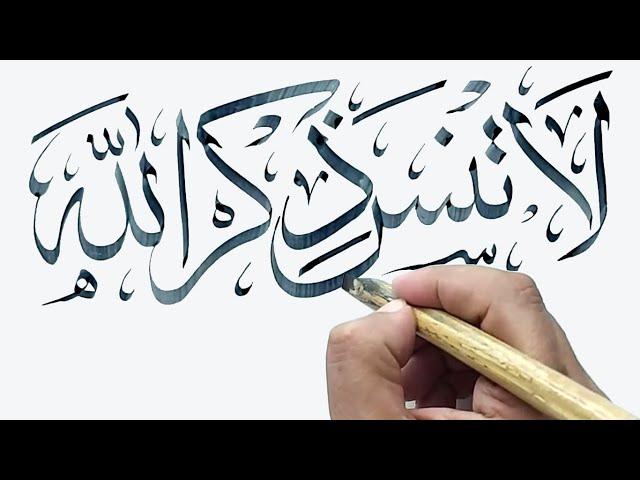 لَا تَنْسَ ذِكْرَ اللهِ